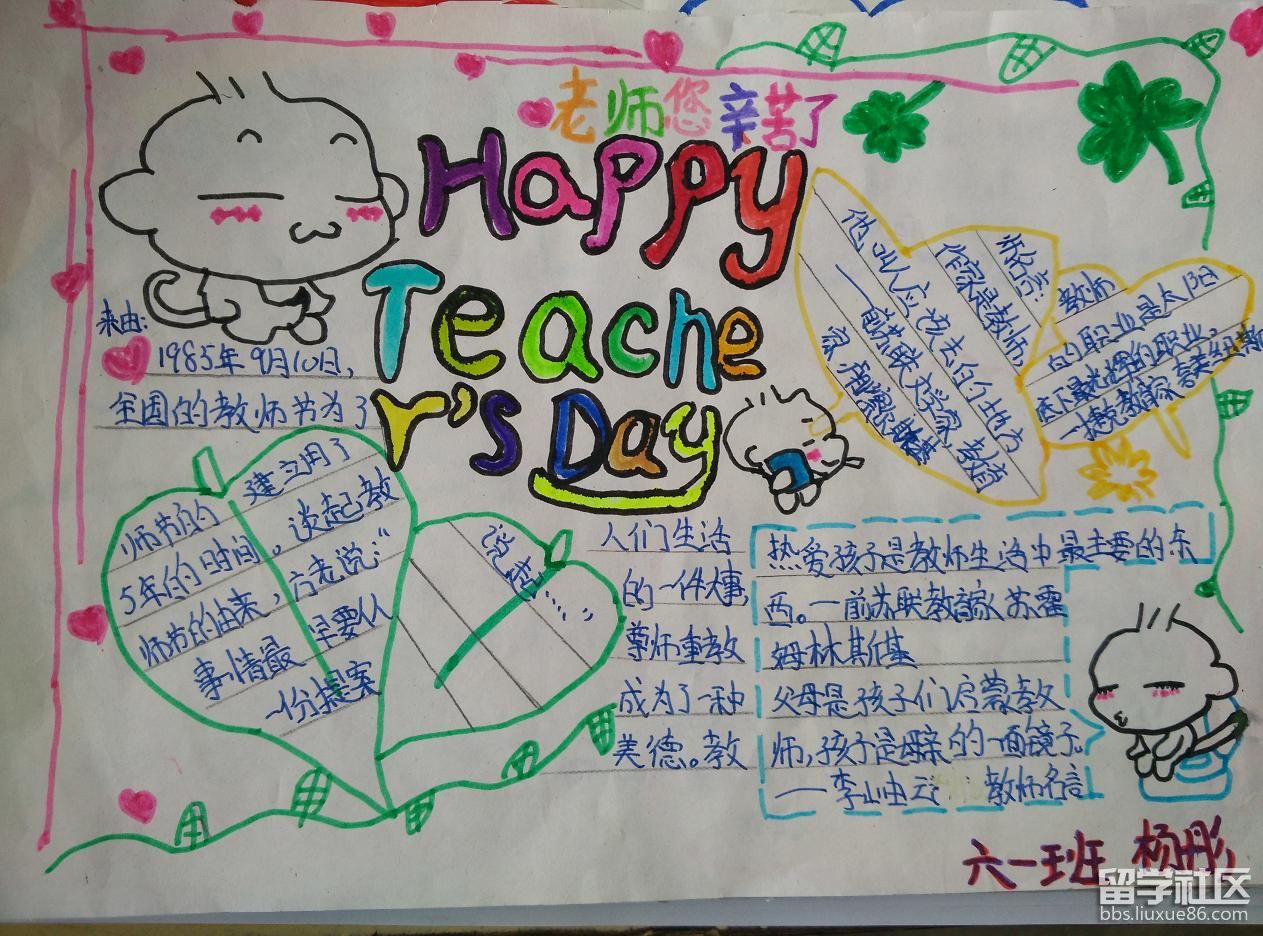 老师您辛苦了
Happy
Teache
r's Day
来由:
1985年9月10日,
全国的教师节为了
建立用了
师节的
5年的时间,谈起教
师节的由来,方老说:"
事情最早要从
一份提案
说起……"
人们生活
的一件大事,
尊师重教
成为了一种
美德。教
师名言:
作家是教师,
他叫人应该去的地方
——前苏联文学家、教育
家
教师
的职业是太阳
底下最光辉的职业。
热爱孩子是教师生活中最主要的东
西。—前苏联教育家苏霍
姆林斯基
父母是孩子们启蒙教
师,孩子是母亲的一面镜子。
——李山由云
教师名言
六一班 杨彤
留学社区
bbs.liuxue86.com